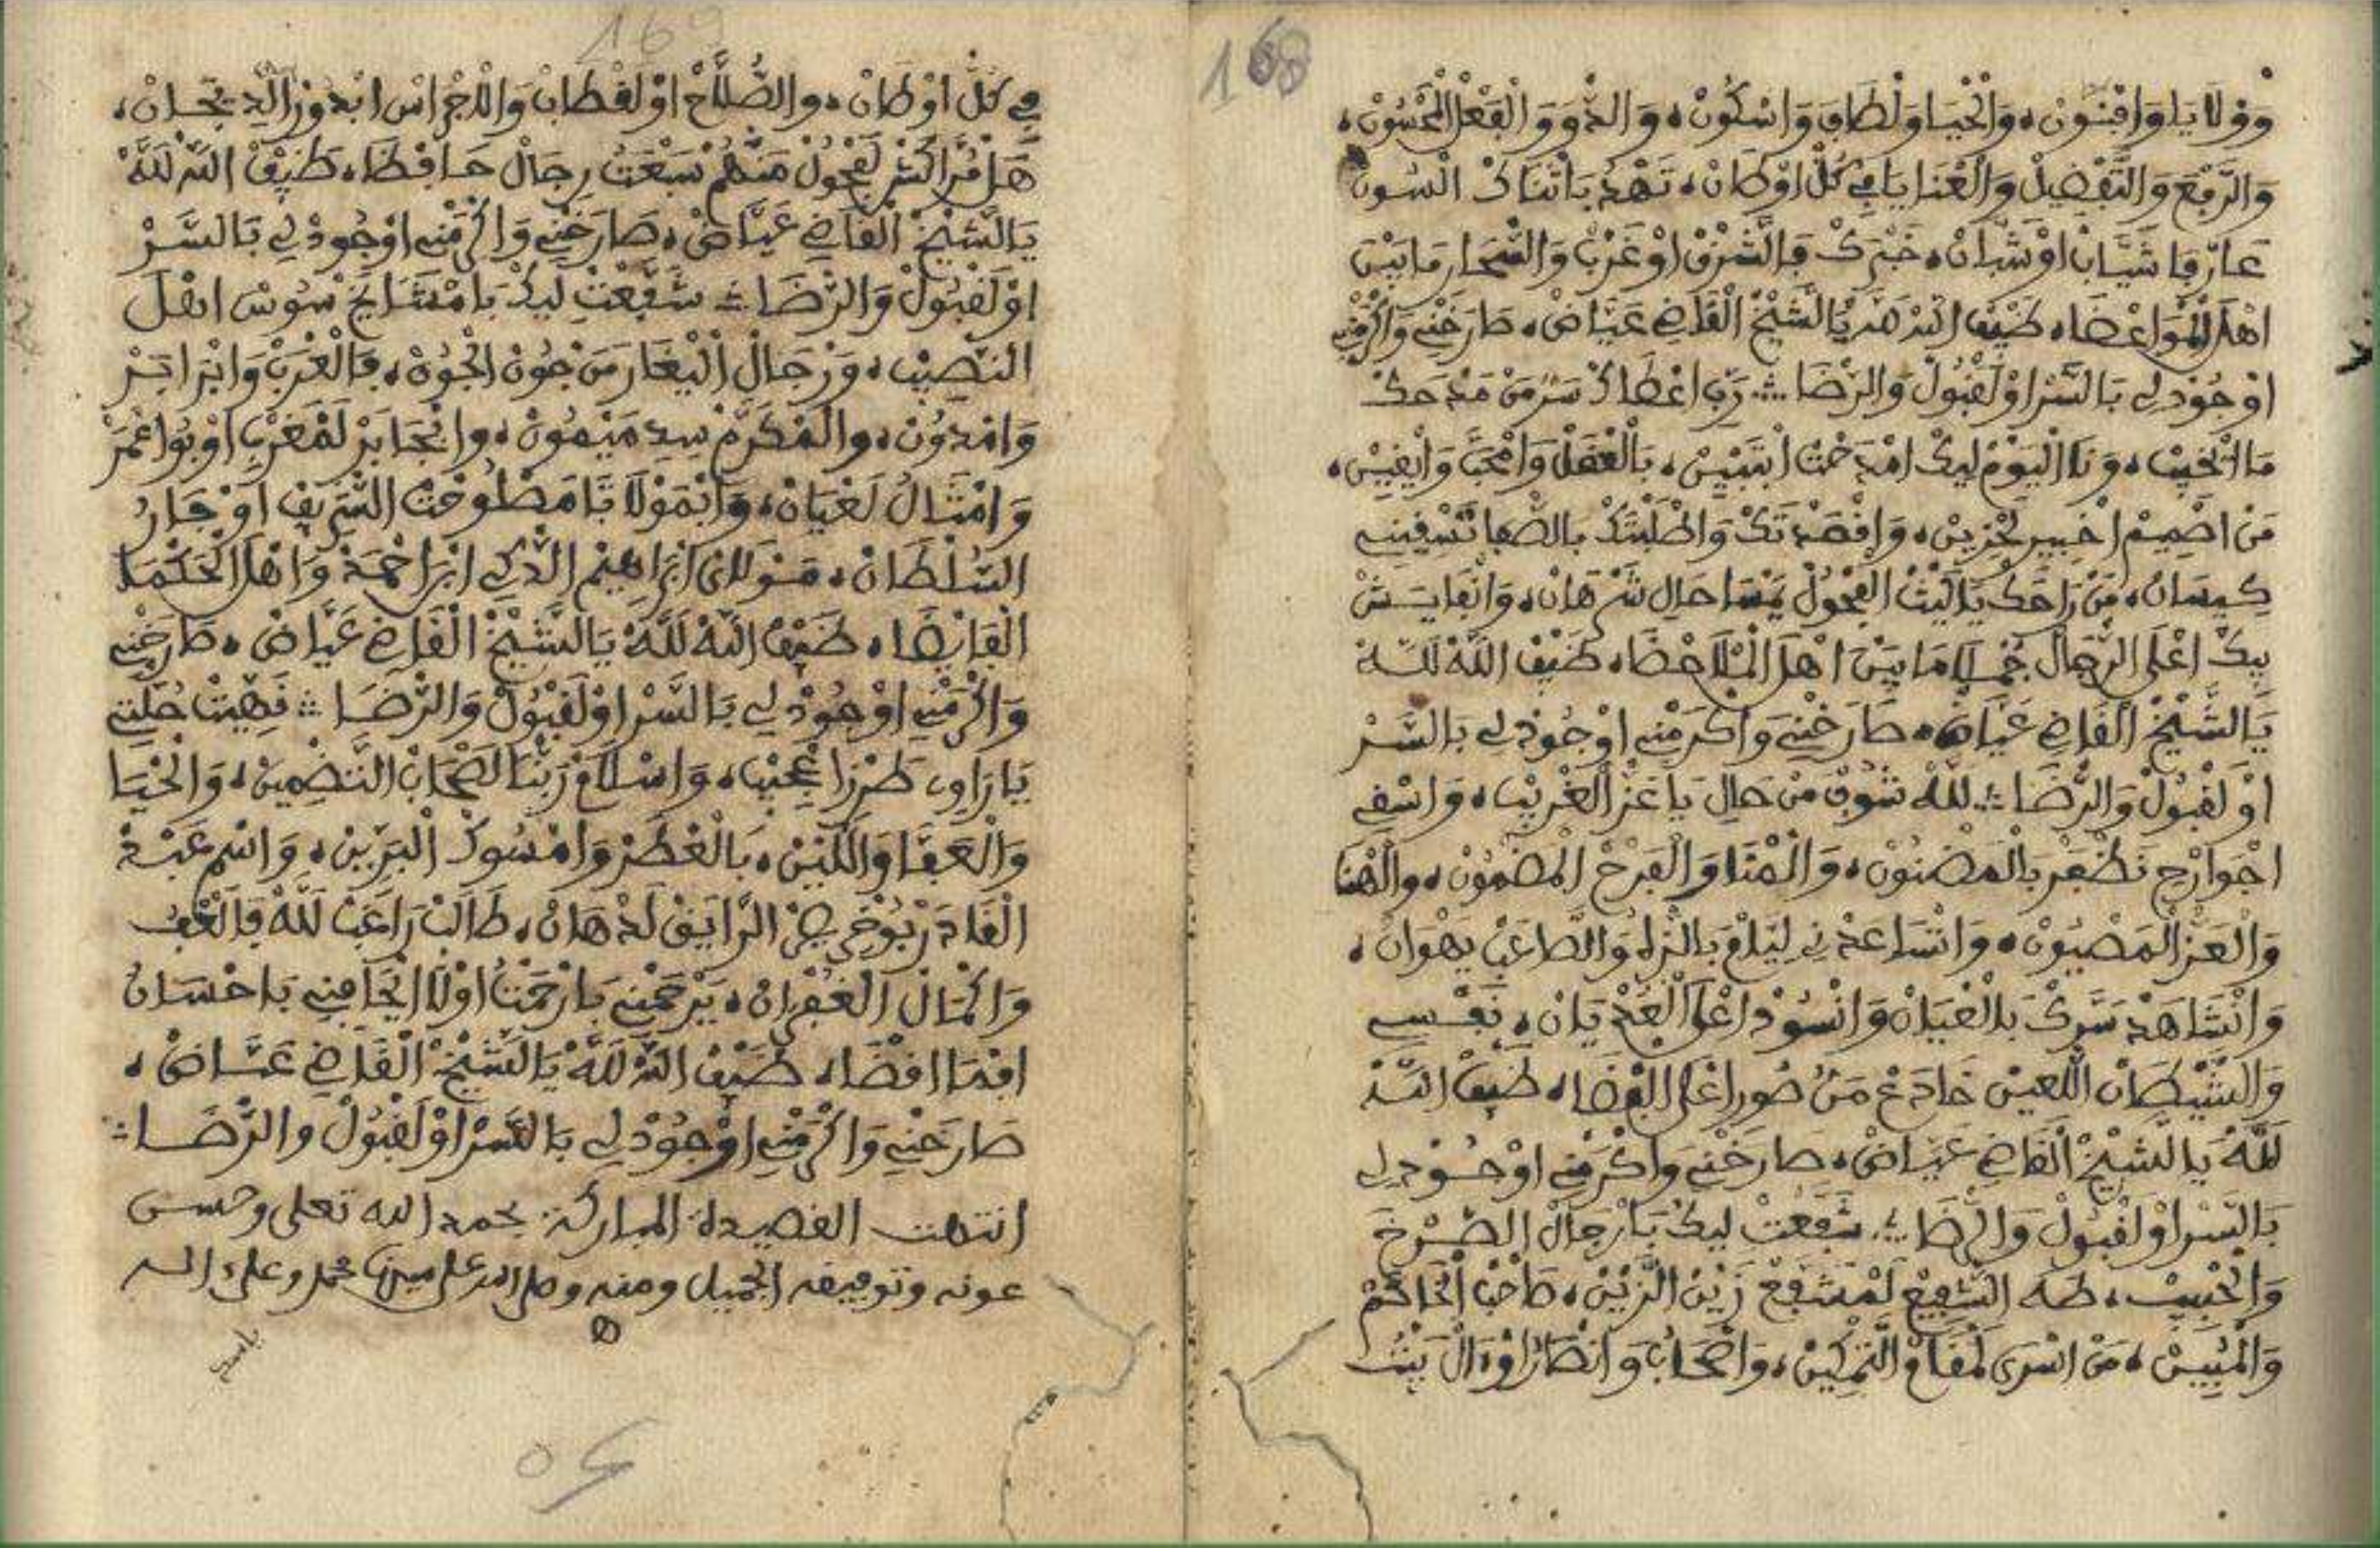 168
وَوْلَايَا وَافْنُونْ، وَالْحْيَا وَلْطَافَ وَاسْكُونْ، وَالذُّوقْ وَالْفَعْلْ الْمَحْسُونْ،
وَالرَّفْعَ وَالتَّفْضِيلْ وَالْعْنَايَا فِي كُلّْ اوْطَانْ، تَشْهَدْ بَاتْنَاكْ السُونْ
عَارْفَا شَيَّابْ اوْشَبَّانْ، خَبْرَكْ فَالشَّرْقْ اوْغَرْبْ وَالصَّحَار مَابَيْنَ
اهْلَ الْمْوَاعْضَا، ضَيْفْ اللّٰهْ لَلّٰهْ يَالشَّيْخْ الْقَاضِي عَيَّاضْ، صَارَخْنِي وَاكْرَمْنِي
اوْجُودْ لِي بَالسَّرْ اوْلَقْبُولْ وَالرّْضَا ∴ رَبِّ اعْطَاكْ سَرّْ مَنْ مَدْحَكْ
مَا اتْخَيَّبْ، وَنَا الْيَوْمْ لِيكْ امْدَحْتْ ابْتَبْيِينْ، بَالْعْقَلْ وَامْحَبَّ وَايْقِينْ،
مَنْ اصْمِيمْ اخْبِيرْ لَحْزِينْ، وَاقْصَدْتَكْ وَاطْلَبْتَكْ بَالصّْفَا تَسْقِينِي
كِيسَانْ، مَنْ رَاحَكْ يَالَيْثْ الْفْحُولْ يَنْسَا حَالِ شَرْهَانْ، وَانْفَايَشْ
بِيكْ اعْلَى الرّْجَالْ جُمْلَا مَابَيْنَ اهْلَ الْمْلَاحْضَا، ضَيْفْ اللّٰهْ لَلّٰهْ
يَالشَّيْخْ الْقَاضِي عَيَّاضْ، صَارَخْنِي وَاكْرَمْنِي اوْجُودْ لِي بَالسَّرْ
اوْلَقْبُولْ وَالرّْضَا ∴ لَلّٰهْ شُوفْ مَنْ حَالِ يَاعَزّْ الْغْرِيبْ، وَاسْقِي
اجْوَارْحِي نَظْفَرْ بَالْمَضْنُونْ، وَالْمْنَا وَالْفَرْحْ الْمَضْمُونْ، وَالْهْنَا
وَالْعَزّْ الْمَصْيُونْ، وَاتْسَاعَدْنِي لَيَّامْ بَالنّْزَاهْ وَالطَّاعَبْ يَهْوَانْ،
وَانْشَاهَدْ سَرَّكْ بَالْعْيَانْ وَانْسُودْ اعْلَى الْعَدْيَانْ، نَفْسِي
وَالشَّيْطَانْ اللّْعِينْ خَادَعْ مَنْ صُورْ اعْلَى الْفْضَا، ضَيْفْ اللّٰهْ
لَلّٰهْ يَالشَّيْخْ الْقَاضِي عَيَّاضْ، صَارَخْنِي وَاكْرَمْنِي اوْجُودْ لِي
بَالسَّرْ اوْلَقْبُولْ وَالرّْضَا ∴ شَفَّعْتْ لِيكْ بَارْجَالْ الصَّرْخَ
وَالْحْبِيبْ، طَهَ الشّْفِيعْ لَمْشَفَّعْ زَيْنْ الزَّيْنْ، صَاحْبْ الْخَاتَمْ
وَالْمْبِينْ، مَنْ اسْرَى لَمْقَامْ التَّمْكِينْ، وَاصْحَابُ وَانْصَارُ اوْءَالْ بَيْتُ
169
فِي كُلّْ اوْطَانْ، وَالصُّلَّاحْ اوْلَقْطَابْ وَالَاجْرَاسْ ابْدُورْ الَّدِيجَانْ،
هَلْ مُرَّاكُشْ لَفْحُولْ مَنْهُمْ سَبْعَتُ رِجَالْ حَافْظَا، ضَيْفْ اللّٰهْ لَلّٰهْ
يَالشَّيْخْ الْقَاضِي عَيَّاضْ، صَارَخْنِي وَاكْرَمْنِي اوْجُودْ لِي بَالسَّرْ
اوْلَقْبُولْ وَالرّْضَا ∴ شَفَّعْتْ لِيكْ بَامْشَايَخْ سُوسْ اهْلَ
النّْصِيبْ، وَرْجَالْ الْيْغَارْ مَنْ جُونْ الْجُونْ، فَالْغَرْبْ وَابْرَابَرْ
وَامْدُونْ، وَالْمْكَرَّمْ سِيدِ مَيْمُونْ، وَاجَّابَرْ لَمْغَرْبْ اوْبُواعْمَرْ
وَامْثَالُ لَعْيَانْ، وَابْمَوْلَانَا مَصْلُوحْتْ الشّْرِيفْ اوْجَارْ
السُّلْطَانْ، مَوْلَايْ ابْرَاهِيمْ الذَّكِي ابْنْ احْمَدْ وَاهْلَ الْحَكْمَا
الْفَايْضَا، ضَيْفْ اللّٰهْ لَلّٰهْ يَالشَّيْخْ الْقَاضِي عَيَّاضْ، صَارَخْنِي
وَاكْرَمْنِي اوْجُودْ لِي بَالسَّرْ اوْلَقْبُولْ وَالرّْضَا ∴ نَهِيتْ حُلّْتِي
يَارَاوِي طَرْزْ اعْجِيبْ، وَاسْلَامْ رَبّْنَا لَصْحَابْ التّْنْضِمِينْ، وَالْحْيَا
وَالْعَفَّا وَاللَّيْنْ، بَالْعْطَرْ وَامْسُوكْ الْبَرَّيْنْ، وَاسْمِي عَبْدْ
الْقَادَرْ بُوخْرِيصْ الرَّايَقْ لَدْهَانْ، طَالَبْ رَاغَبْ لَلّٰهْ فَالْعْفُ
وَاكْمَالْ الْغُفْرَانْ، يَرْحَمْنِي بَارْحَمْتُ اوْلَا ايْجَافِينِي بَاحْسَانُ
افْمَا اقْضَا، ضَيْفْ اللّٰهْ لَلّٰهْ يَالشَّيْخْ الْقَاضِي عَيَّاضْ،
صَارَخْنِي وَاكْرَمْنِي اوْجُودْ لِي بَالسَّرْ اوْلَقْبُولْ وَالرّْضَا ∴
انتهت القصيدة المباركة بحمد الله تعلى وحسن
عونه وتوفيقه الجميل ومنه وصلى الله على سيدنا محمد وعلى اله